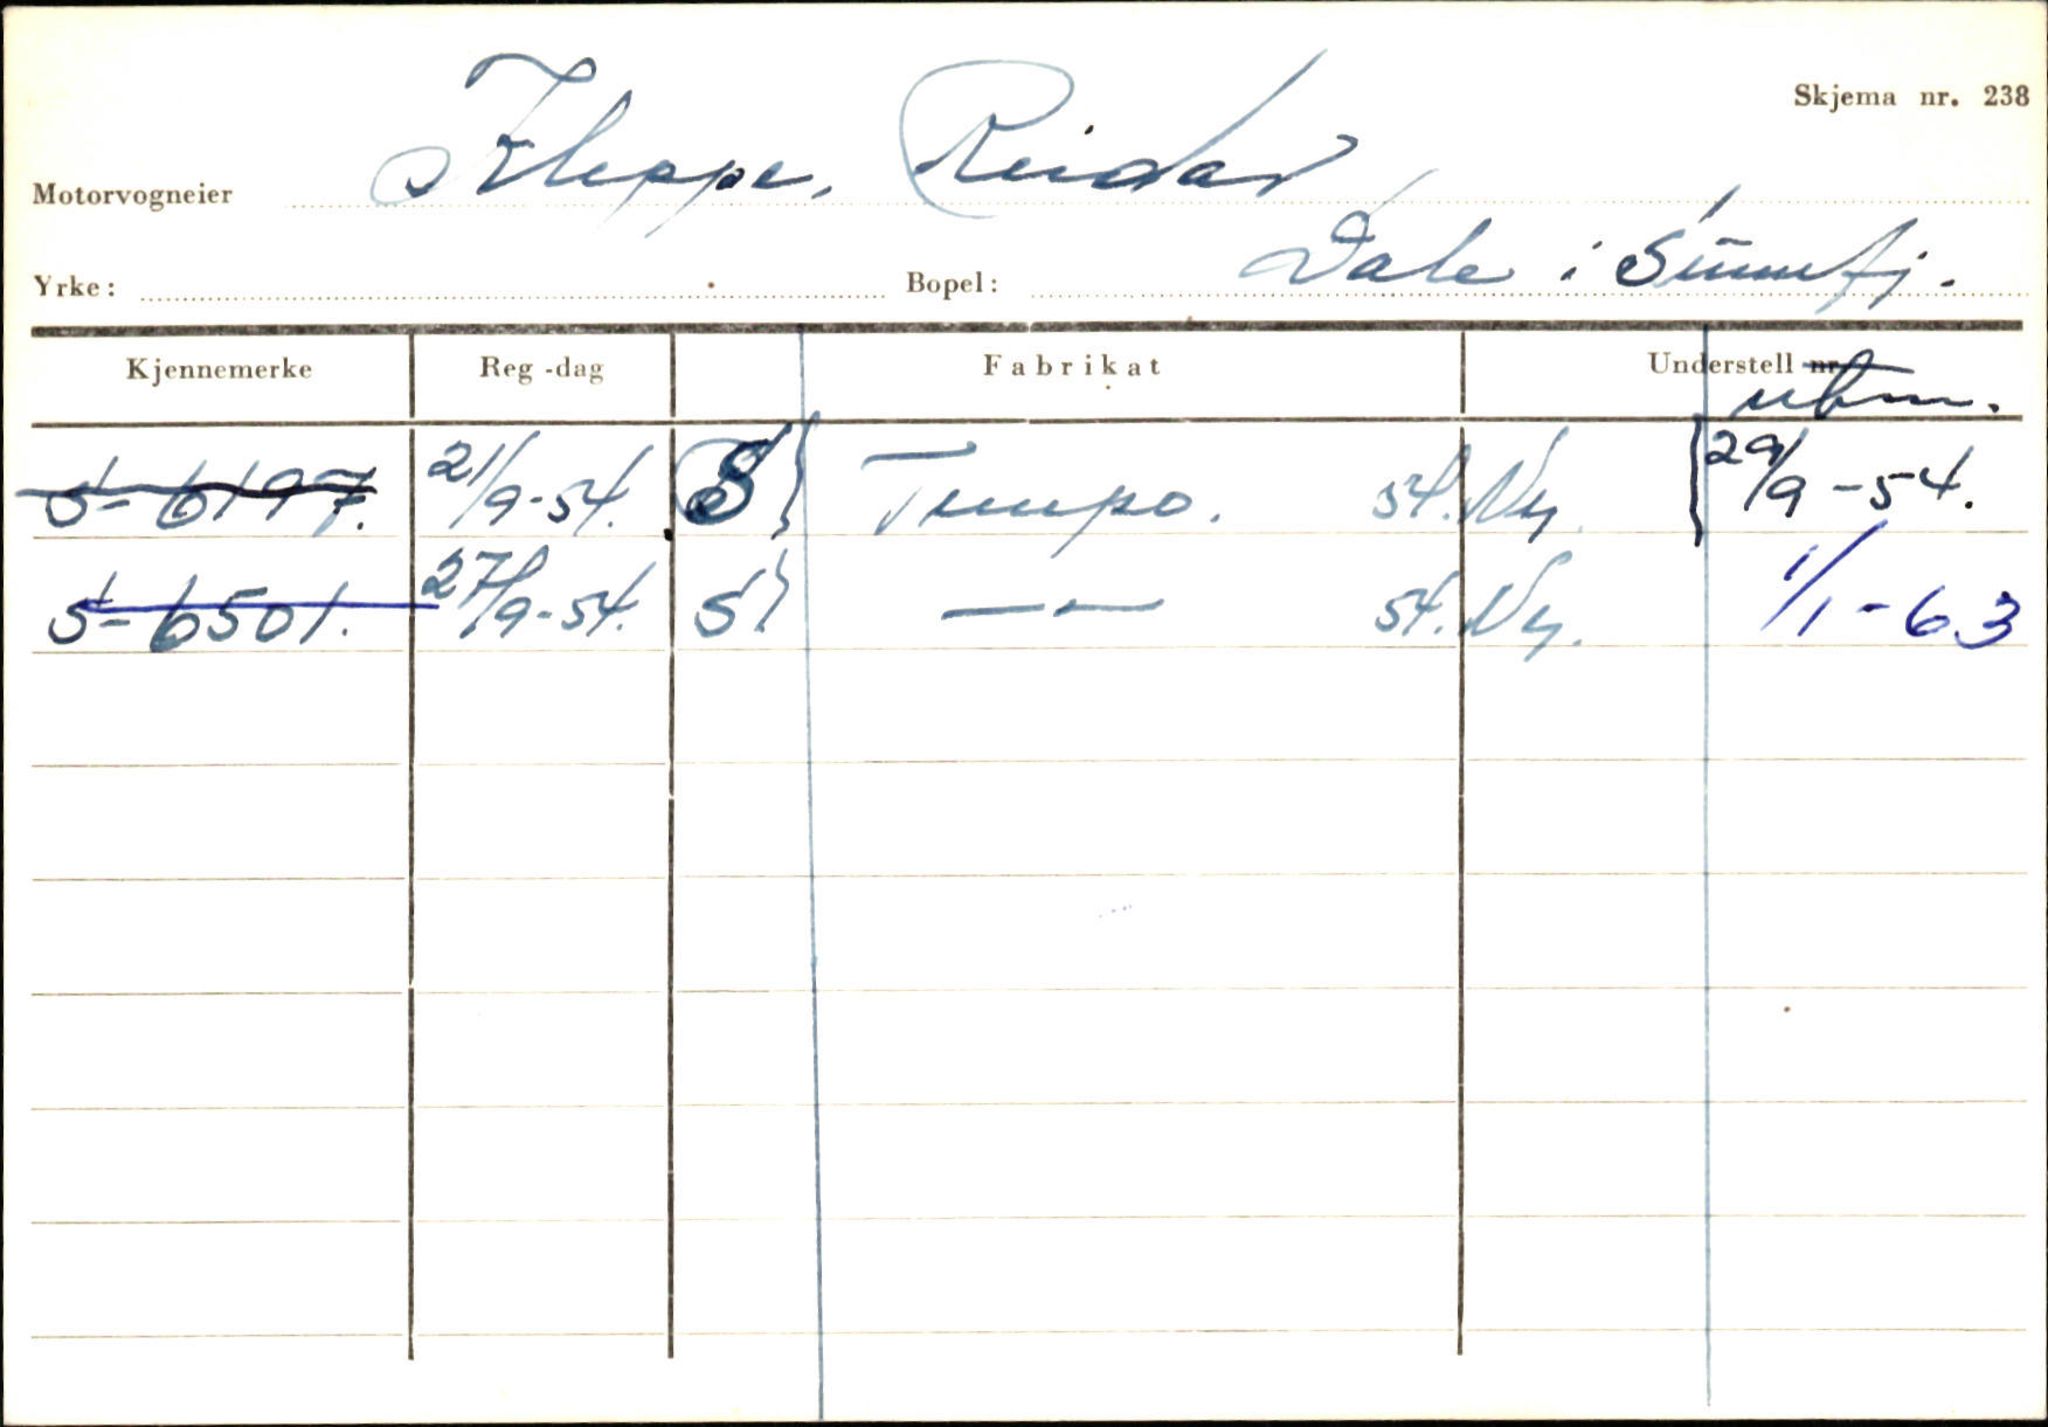 Skjema nr. 238
Motorvogneier Kleppe, Reidar
Yrke: Bopel: Dale i Sunnfj.
Kjennemerke Reg-dag Fabrikat Understell nr. ubm.
S-6197. 21/9-54. S Tempo. 54. Ny. 29/9-54.
S-6501. 27/9-54. S — — 54. Ny. 1/1-63